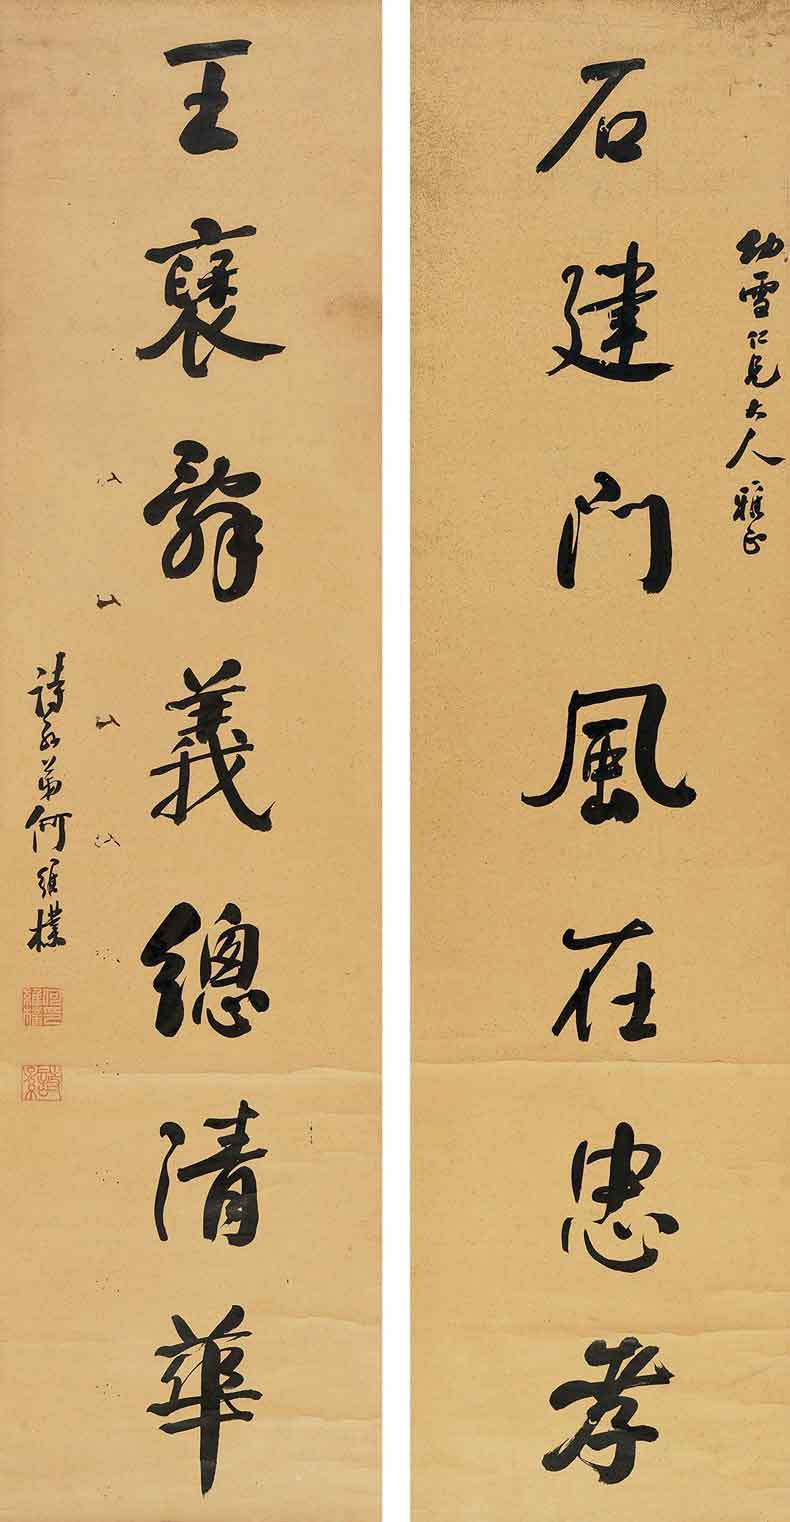 幼雪仁兄大人雅正
石建門風在忠孝
王褒辭義總清華
詩孫弟何維樸